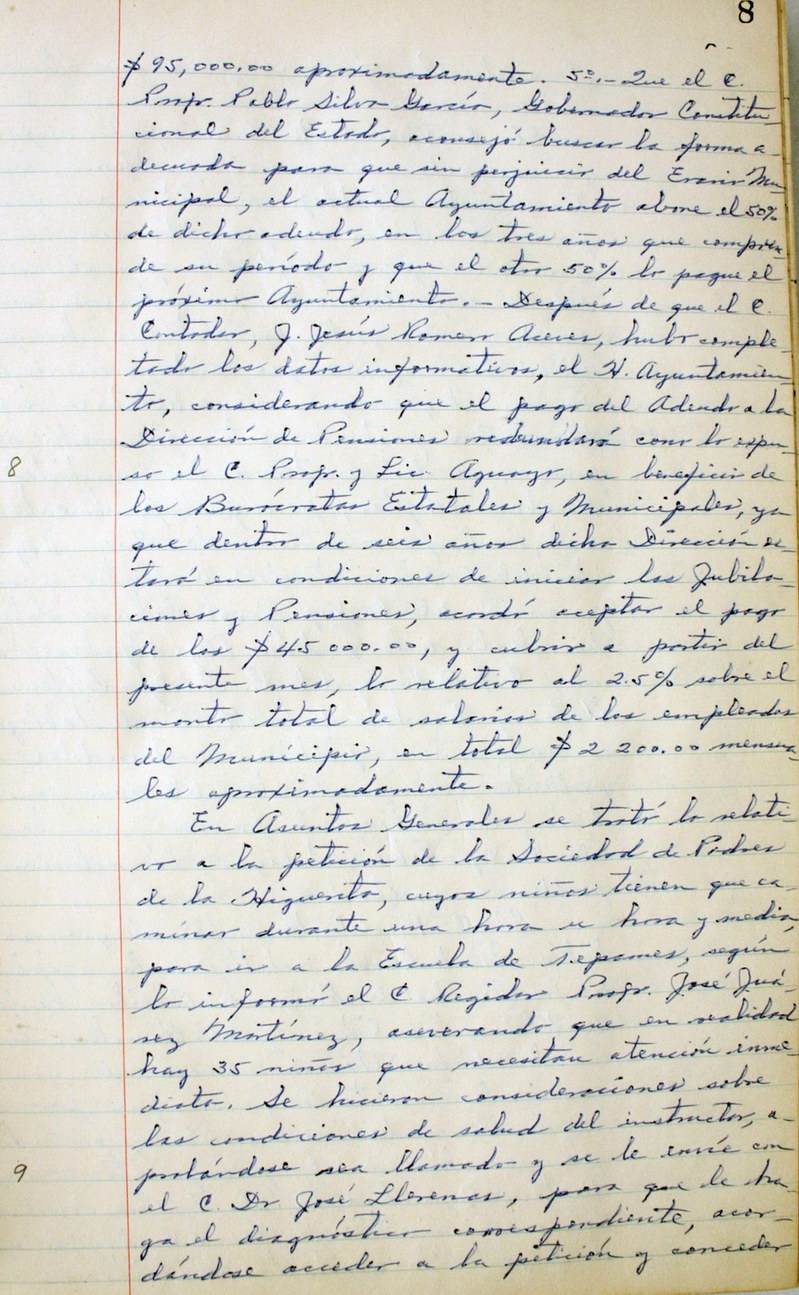 8
$95,000.00 aproximadamente. 5º.- Que el C.
Profr. Pablo Silva García, Gobernador Constitu-
cional del Estado, aconsejó buscar la forma a-
decuada para que sin perjuicio del Erario Mu-
nicipal, el actual Ayuntamiento abone el 50%
de dicho adeudo, en los tres años que compren-
de su período y que el otro 50% lo pague el
próximo Ayuntamiento.- Después de que el C.
Contador, J. Jesús Romero Aceves, hubo comple-
tado los datos informativos, el H. Ayuntamien-
to, considerando que el pago del Adeudo a la
Dirección de Pensiones redundará como lo expu-
8
so el C. Profr. y Lic. Aguayo, en beneficio de
los Burócratas Estatales y Municipales, ya
que dentro de seis años dicha Dirección es-
tará en condiciones de iniciar las Jubila-
ciones y Pensiones, acordó aceptar el pago
de los $45 000.00, y cubrir a partir del
presente mes, lo relativo al 2.5% sobre el
monto total de salarios de los empleados
del Municipio, en total $2 200.00 mensua-
les aproximadamente.
En Asuntos Generales se trató lo relati-
vo a la petición de la Sociedad de Padres
de la Higuerita, cuyos niños tienen que ca-
minar durante una hora u hora y media,
para ir a la Escuela de Tepames, según
lo informó el C. Regidor Profr. José Juá-
rez Martínez, aseverando que en realidad
hay 35 niños que necesitan atención inme-
diata. Se hicieron consideraciones sobre
las condiciones de salud del instructor, a-
9
probándose sea llamado y se le envíe con
el C. Dr. José Llerenas, para que le ha-
ga el diagnóstico correspondiente, acor-
dándose acceder a la petición y conceder